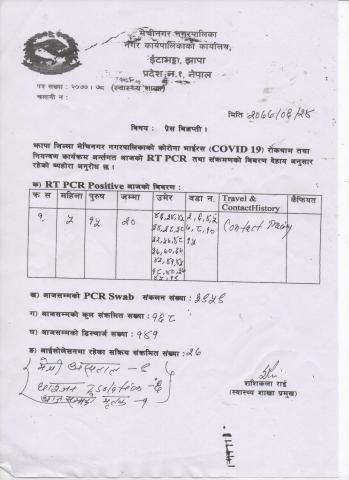 मेचीनगर नगरपालिका
नगर कार्यपालिकाको कार्यालय,
ईटाभट्टा, झापा
प्रदेश न.१, नेपाल
पत्र संख्या : २०७७।७८ (स्वास्थ्य शाखा)
चलानी न :
मिति २०७७/०६/२४
विषय : प्रेस बिज्ञप्ती।
झापा जिल्ला मेचिनगर नगरपालिकाको कोरोना भाईरस (COVID 19) रोकथाम तथा
नियन्त्रण कार्यक्रम अर्न्तगत आजको RT PCR तथा संक्रमणको बिबरण देहाय अनुसार
रहेको ब्यहोरा अनुरोध छ ।
क) RT PCR Positive आजको बिबरण :
क्र स महिला पुरुष जम्मा उमेर वडा न. Travel & ContactHistory कैफियत
१. ५ १५ २० Contact
ख) आजसम्मको PCR Swab संकलन संख्या : ३९५९
ग) आजसम्मको कूल संक्रमित संख्या : १६८
घ) आजसम्मको डिस्चार्ज संख्या : १४१
ङ) आईसोलेसनमा रहेका सक्रिय संक्रमित संख्या : २६
मेची अस्पताल - ६
आजसम्मको मृतक - १
शशिकला राई
(स्वास्थ्य शाखा प्रमुख)